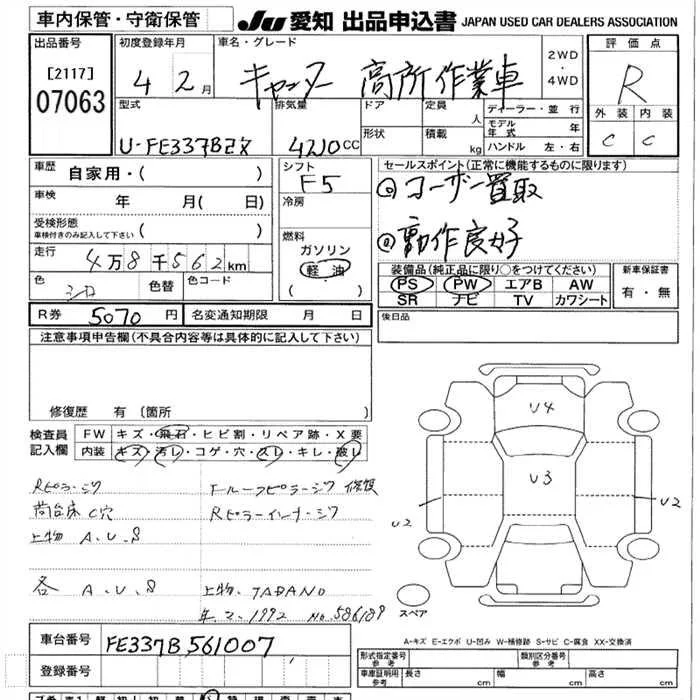 車内保管・守衛保管
JU 愛知 出品申込書 JAPAN USED CAR DEALERS ASSOCIATION
出品番号
[2117]
07063
初度登録年月
4年 2月
車名・グレード
キャンター 高所作業車
2WD
・
4WD
評価点
R
外装 内装
C C
型式
U-FE337B改
排気量
4210CC
ドア
形状
定員
人
積載
kg
ディーラー・並行
モデル年式 年
ハンドル 左・右
車歴
自家用・( )
車検
年 月( 日)
受検形態
車検付きのみ記入して下さい ( )
走行
4万8千562km
色
シロ
色替
色コード
シフト
F5
冷房
燃料
ガソリン
軽油
( )
セールスポイント(正常に機能するものに限ります)
◎ユーザー買取
◎動作良好
装備品(純正品に限り○をつけてください)
PS PW エアB AW
SR ナビ TV カワシート
新車保証書
有・無
R券 5070円
名変通知期限 月 日
後日品
注意事項申告欄(不具合内容等は具体的に記入して下さい)
修復歴 有(箇所
検査員
記入欄
FW キズ・飛石・ヒビ割・リペア跡・X要
内装 キズ・汚レ・コゲ・穴・スレ・キレ・破レ
Rピラーシワ
荷台床C穴
上物 A.U.S
各 A.U.S
Fルーフピラーシワ 修復
Rピラーインナーシワ
上物.TADANO
年.2.1992 No.586189
U4
U3
U2
U2
スペア
A-キズ E-エクボ U-凹み W-補修跡 S-サビ C-腐食 XX-交換済
車台番号
FE337B561007
登録番号
形式指定番号
参考
類別区分番号
参考
車庫証明用
参考
長さ cm 幅 cm 高さ cm